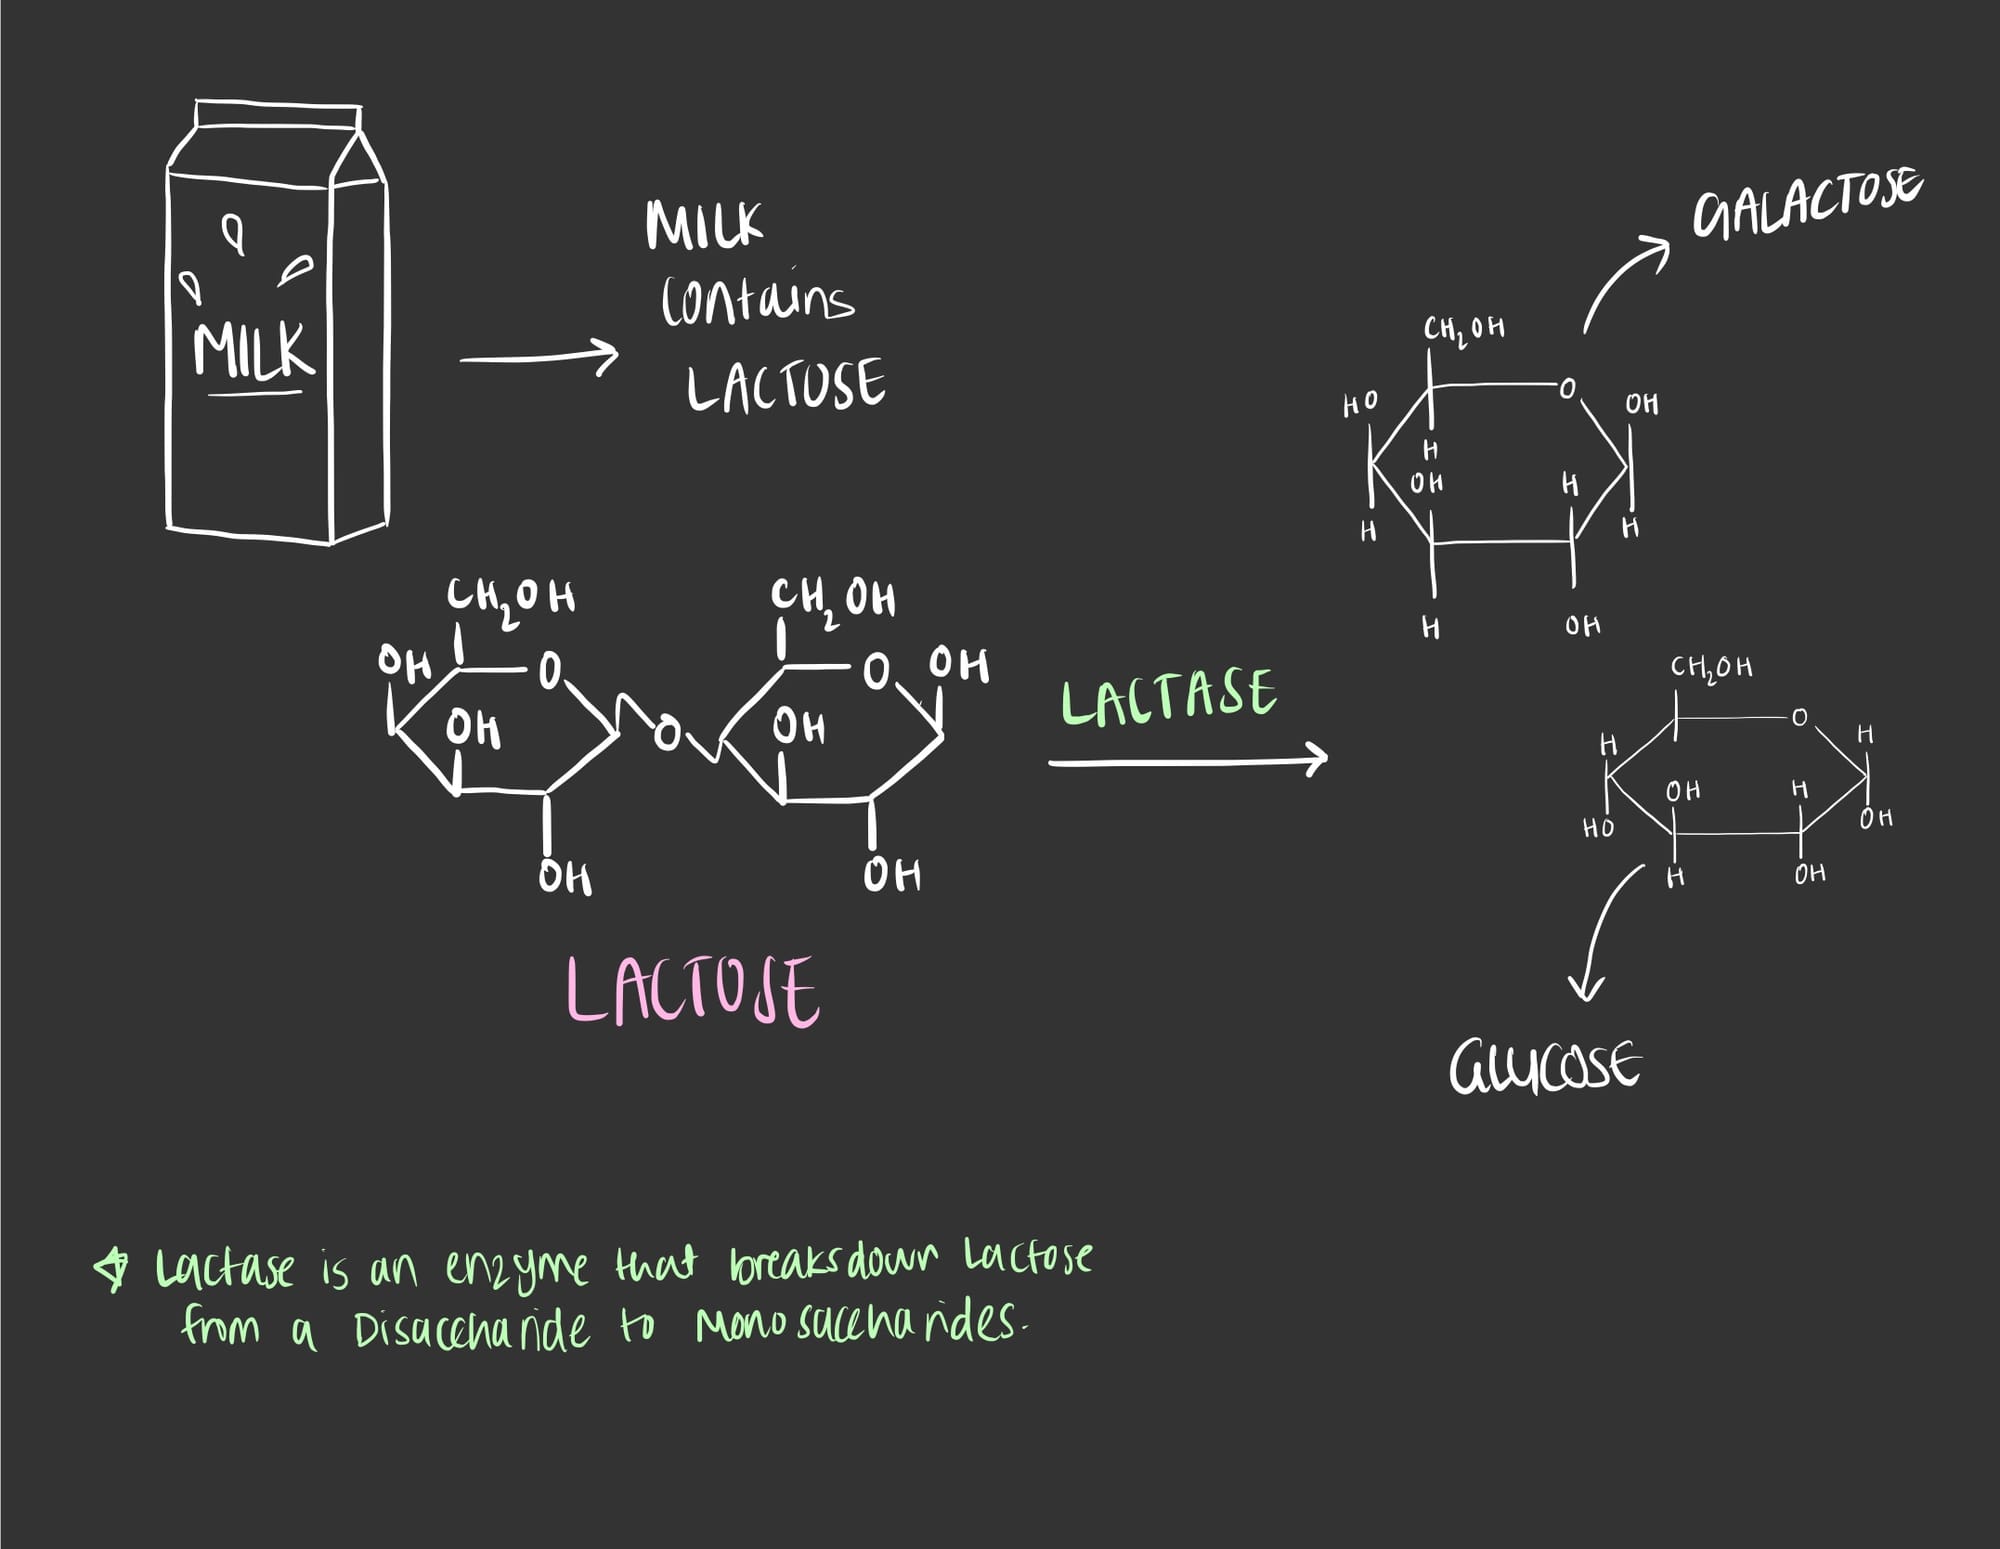 MILK
MILK
contains
LACTOSE
GALACTOSE
CH2OH
HO
O
OH
H
OH
H
H
H
H
OH
CH2OH
OH
O
OH
OH
O
CH2OH
O
OH
OH
OH
LACTASE
CH2OH
O
H
H
OH
H
HO
OH
H
OH
LACTOSE
GLUCOSE
Lactase is an enzyme that breaksdown Lactose
from a Disaccharide to Monosaccharides.